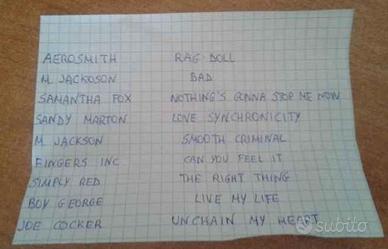 AEROSMITH RAG DOLL
M. JACKOSON BAD
SAMANTHA FOX NOTHING'S GONNA STOP ME NOW
SANDY MARTON LOVE SYNCHRONICITY
M. JACKSON SMOOTH CRIMINAL
FINGERS INC CAN YOU FEEL IT
SIMPLY RED THE RIGHT THING
BOY GEORGE LIVE MY LIFE
JOE COCKER UNCHAIN MY HEART
subito